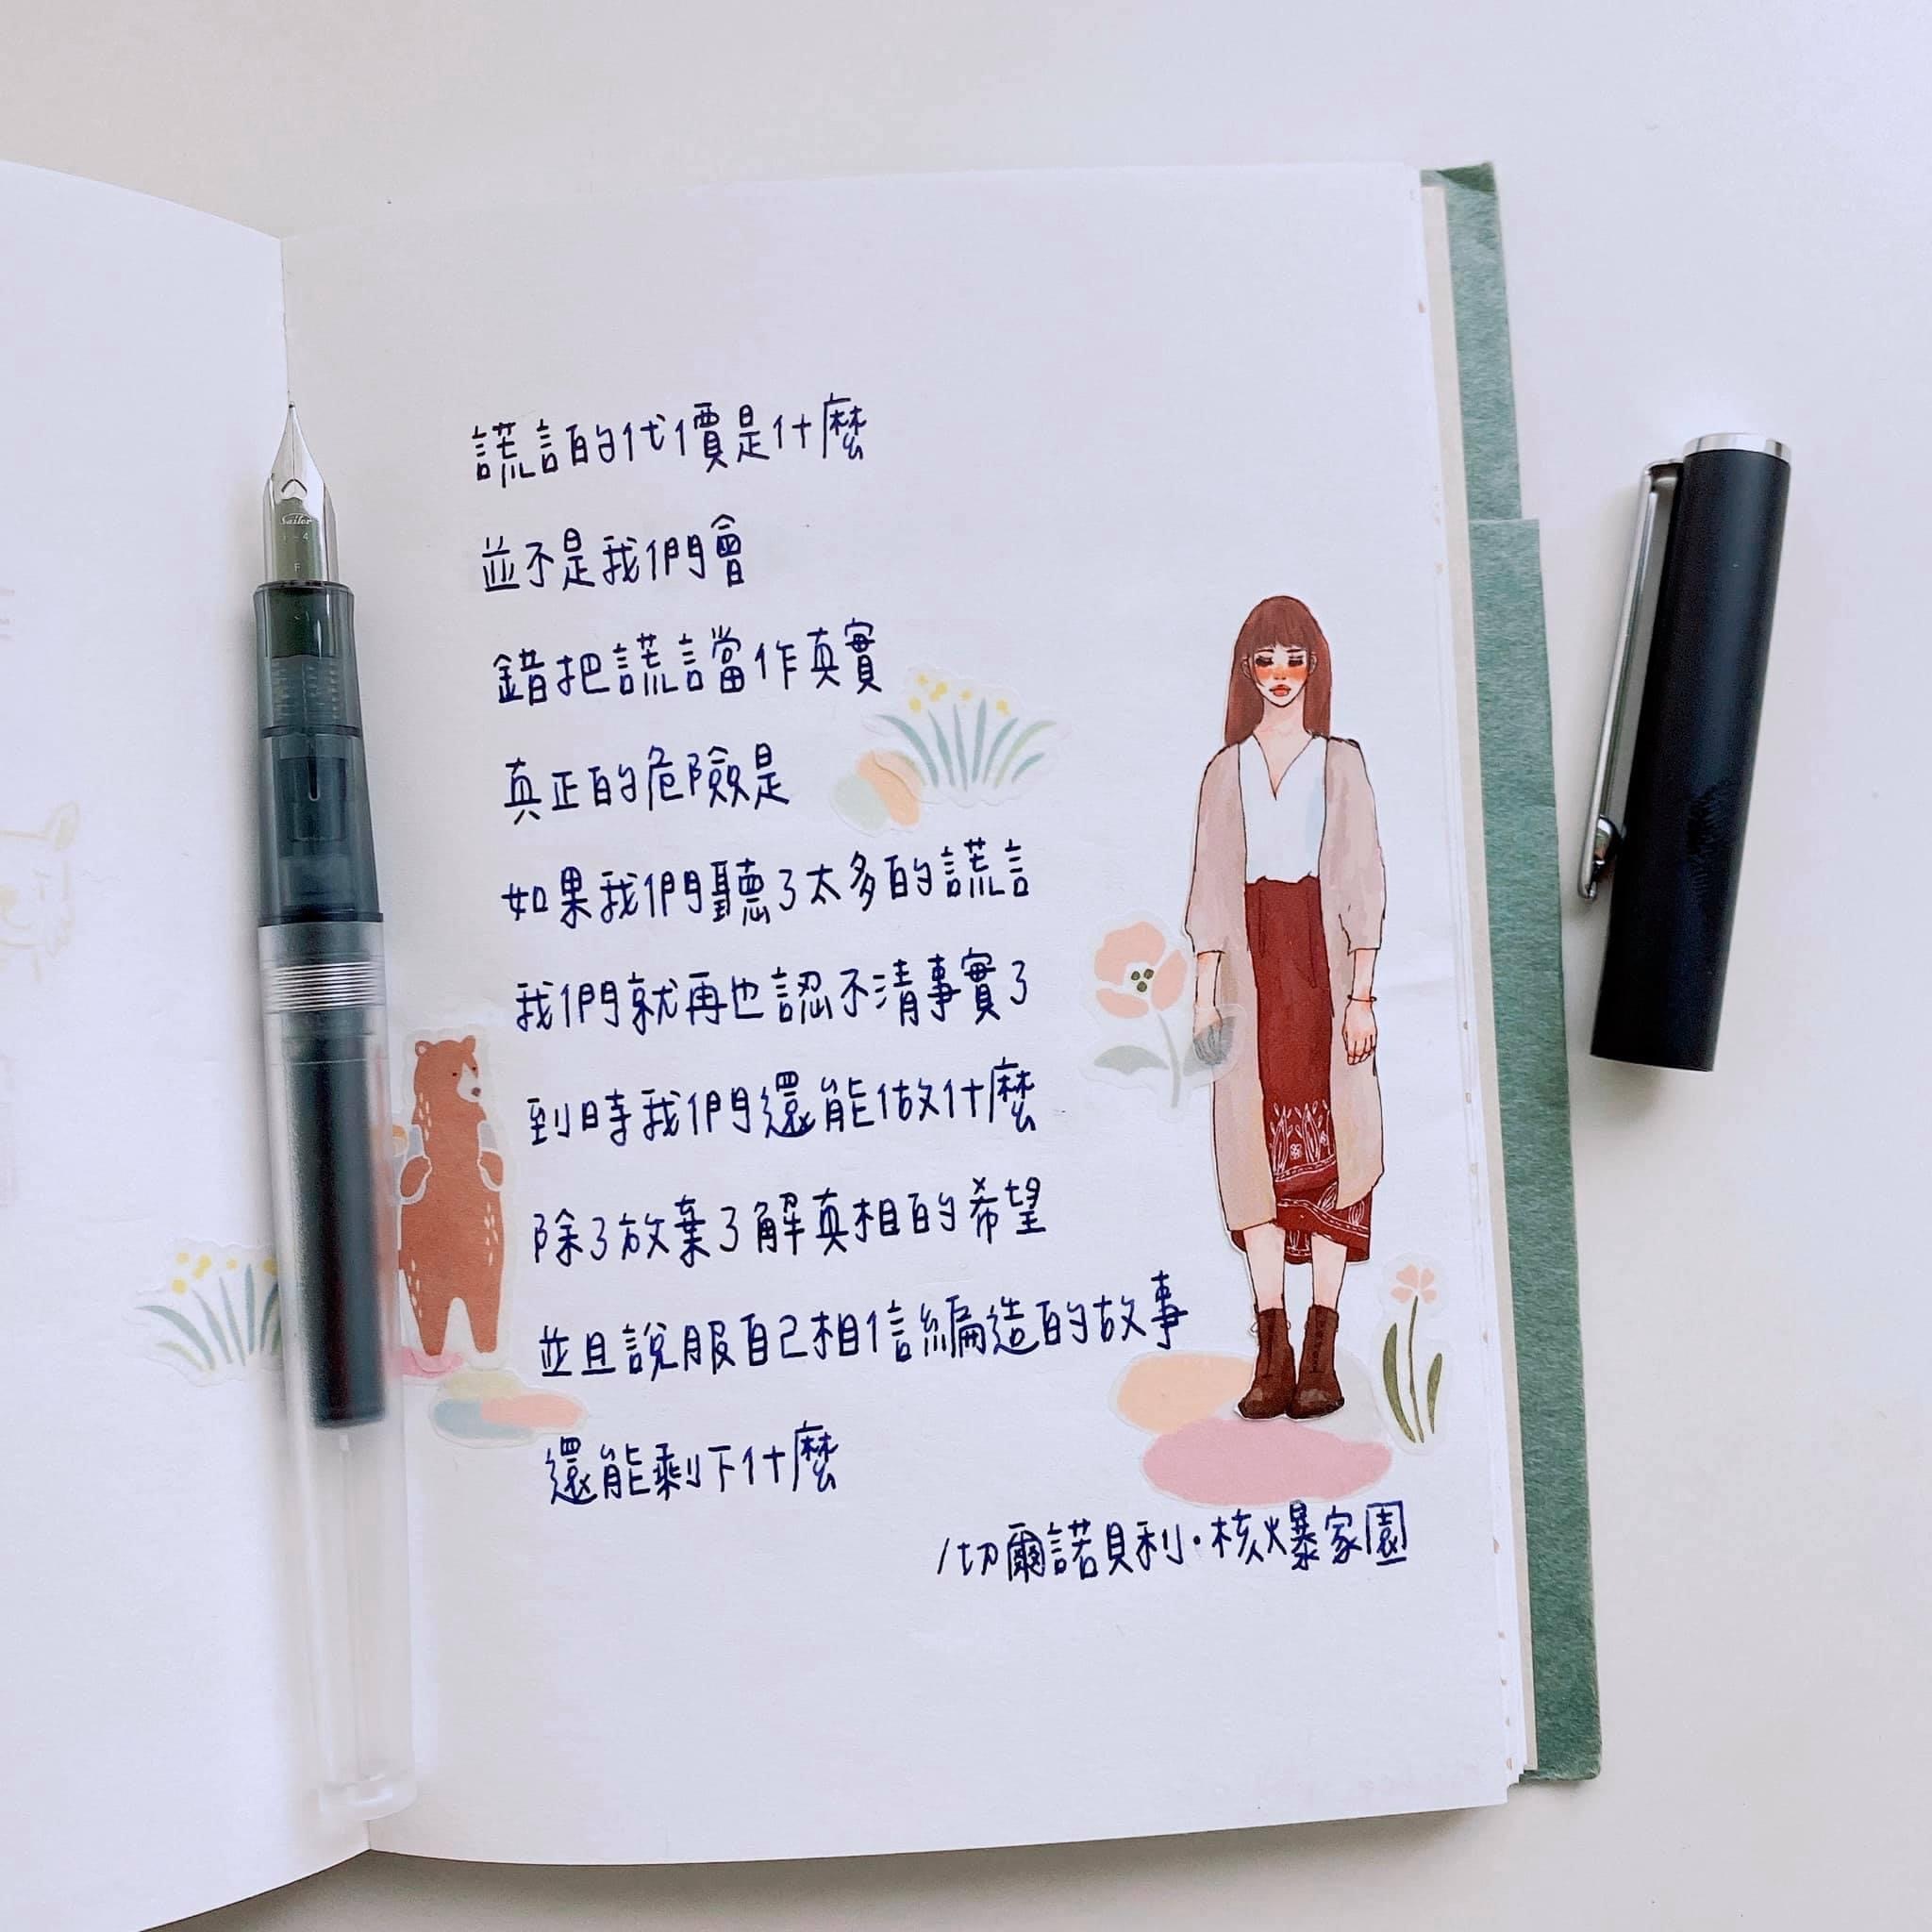 謊言的代價是什麼
並不是我們會
錯把謊言當作真實
真正的危險是
如果我們聽了太多的謊言
我們就再也認不清事實了
到時我們還能做什麼
除了放棄了解真相的希望
並且說服自己相信編造的故事
還能剩下什麼
/切爾諾貝利·核爆家園
Sailor
F-4
F